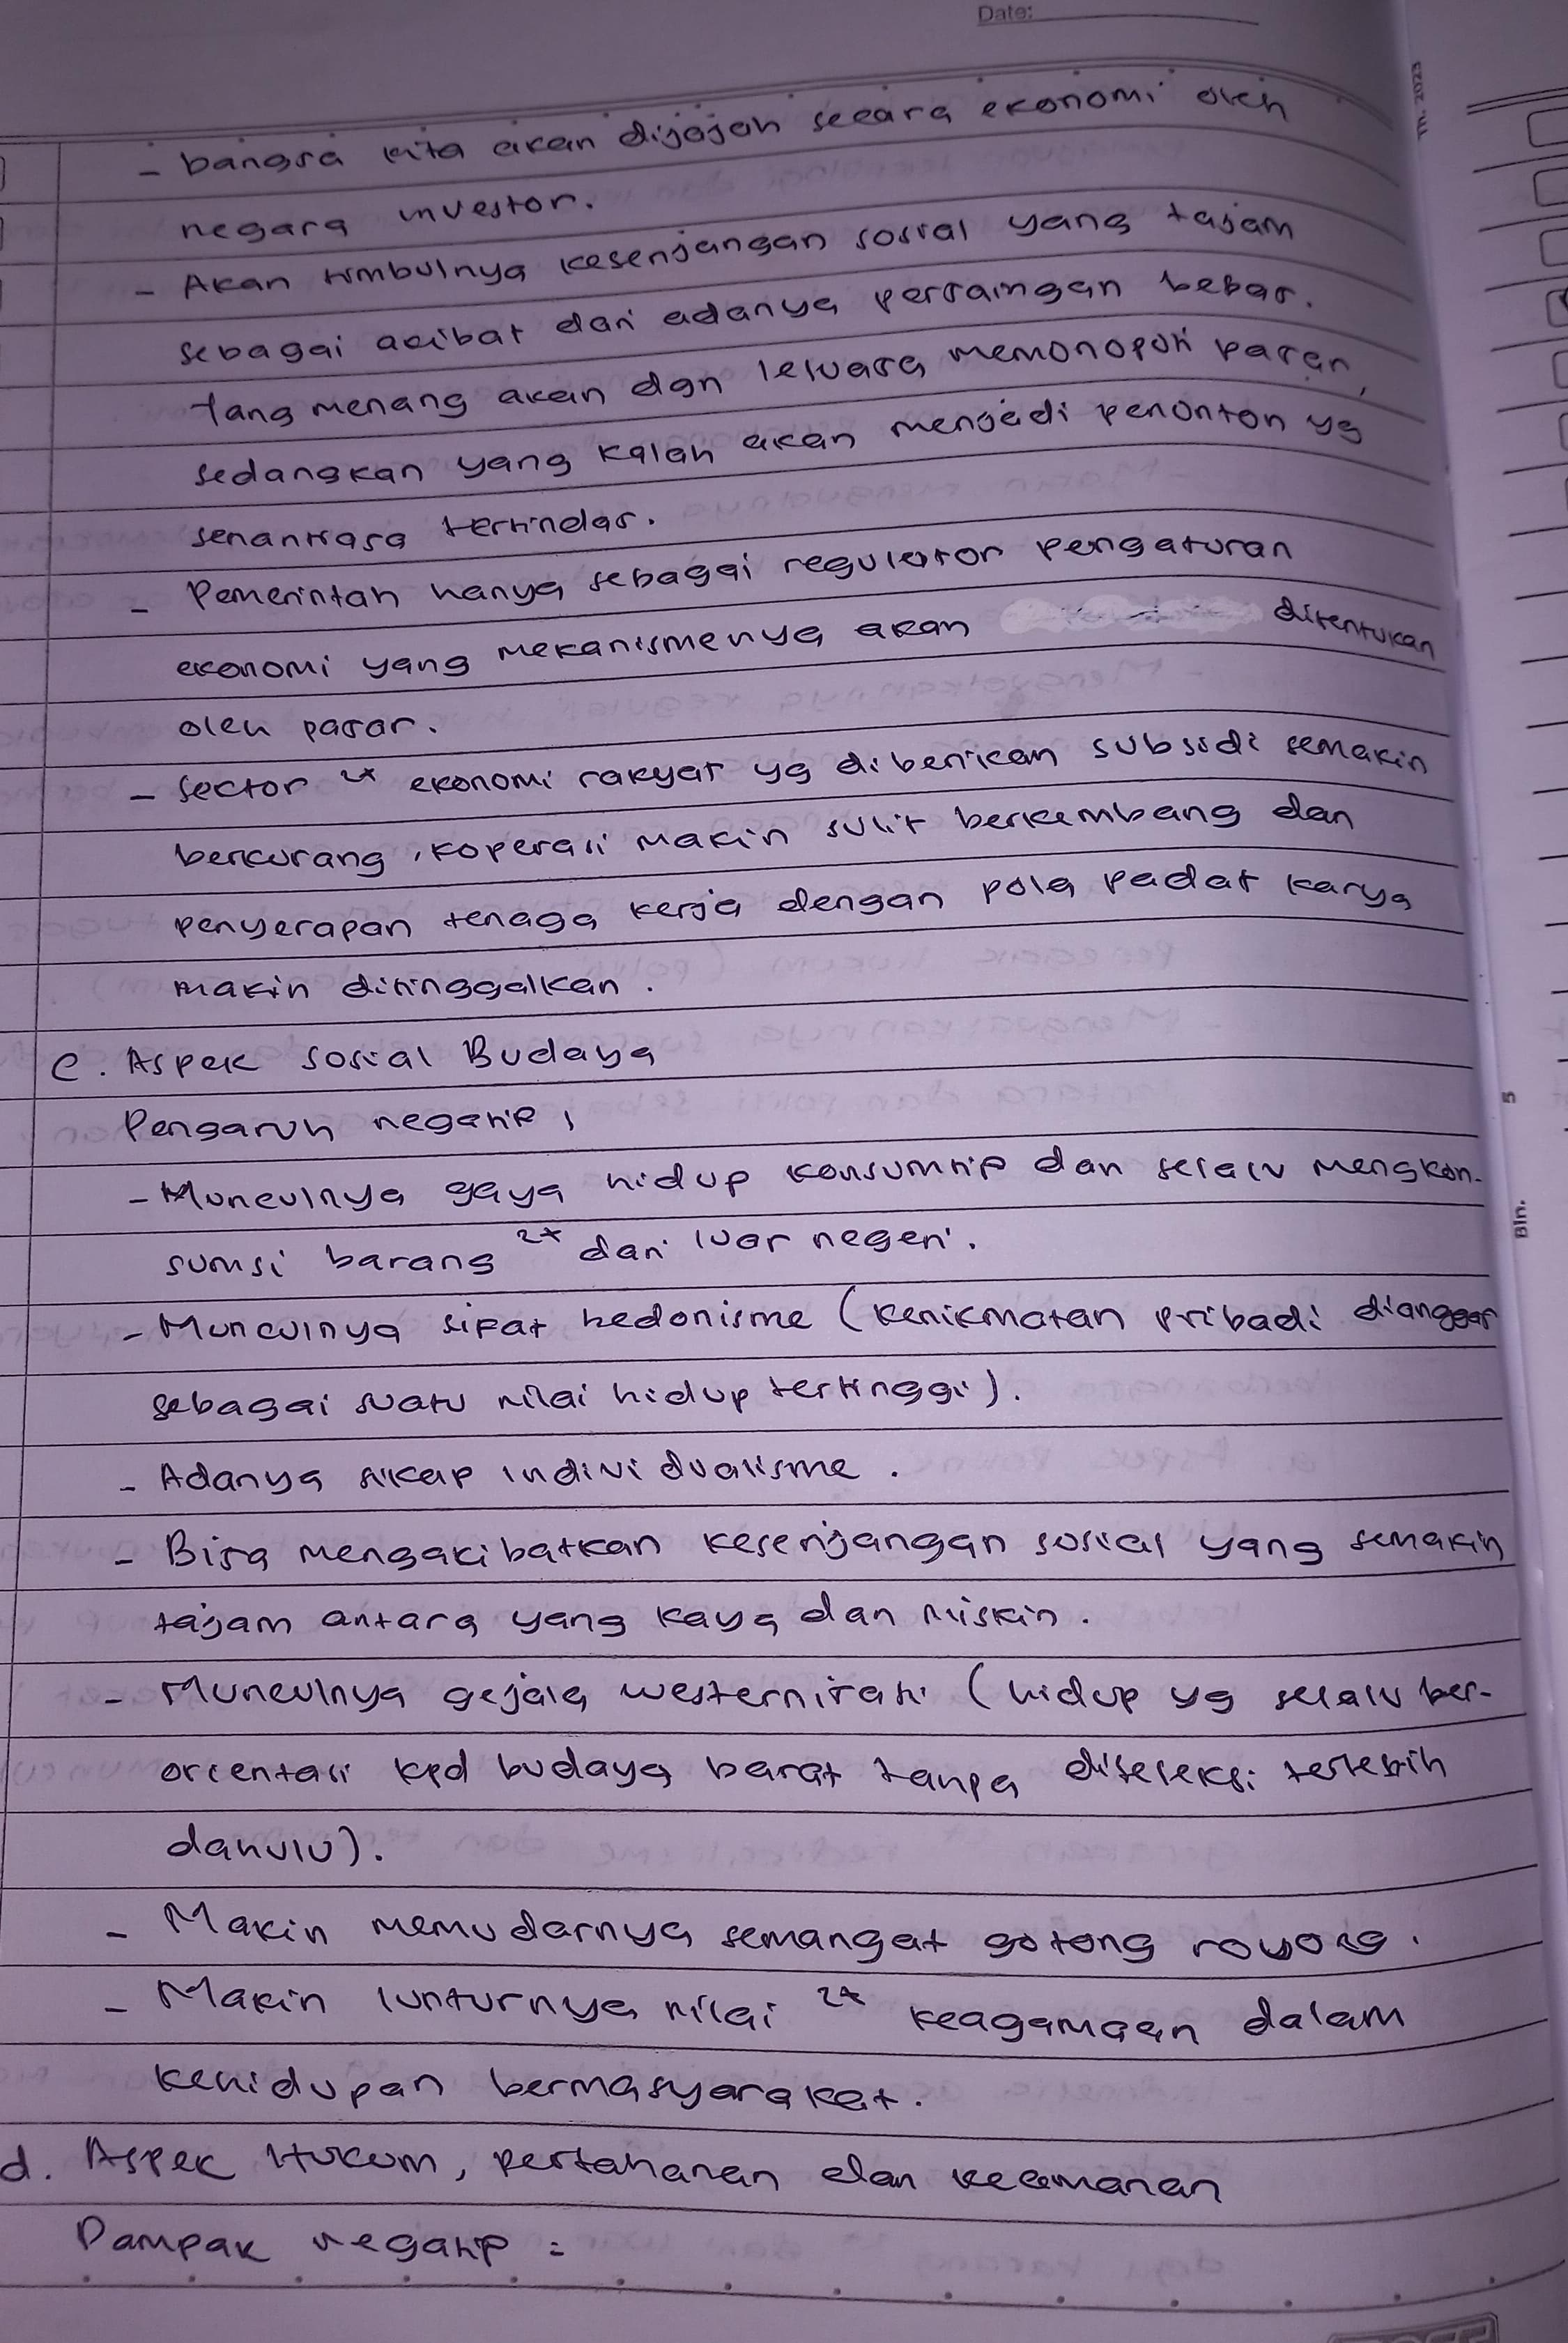 Date:
- bangsa kita akan dijajah secara ekonomi oleh
negara investor.
- Akan timbulnya kesenjangan sosial yang tajam
sebagai akibat dari adanya persaingan bebas.
Yang menang akan dgn leluasa memonopoli pasar,
sedangkan yang kalah akan menjadi penonton yg
senantiasa tertindas.
- Pemerintah hanya sebagai regulator pengaturan
ekonomi yang mekanismenya akan ditentukan
oleh pasar.
- Sector 2x ekonomi rakyat yg diberikan subsidi semakin
berkurang, koperasi makin sulit berkembang dan
penyerapan tenaga kerja dengan pola padat karya
makin ditinggalkan.
C. Aspek Sosial Budaya
Pengaruh negatif,
- Munculnya gaya hidup konsumtif dan selalu mengkon-
sumsi barang 2x dari luar negeri.
- Munculnya sifat hedonisme (kenikmatan pribadi dianggap
sebagai suatu nilai hidup tertinggi).
- Adanya sikap individualisme.
- Bisa mengakibatkan kesenjangan sosial yang semakin
tajam antara yang kaya dan miskin.
- Munculnya gejala westernisasi (hidup yg selalu ber-
orientasi kpd budaya barat tanpa diseleksi terlebih
dahulu).
- Makin memudarnya semangat gotong royong.
- Makin lunturnya nilai 2x keagamaan dalam
kehidupan bermasyarakat.
d. Aspek Hukum, pertahanan dan keamanan
Dampak negatif :
Th. 2023
5
Bln.